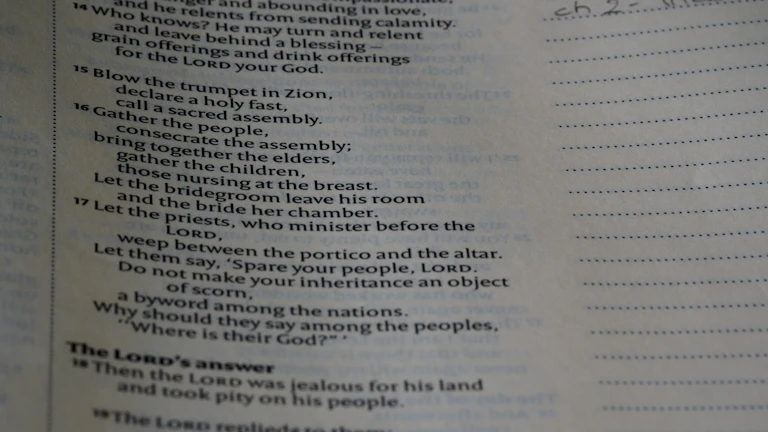 anger and abounding in love,
and he relents from sending calamity.
14 Who knows? He may turn and relent
and leave behind a blessing –
grain offerings and drink offerings
for the LORD your God.
15 Blow the trumpet in Zion,
declare a holy fast,
call a sacred assembly.
16 Gather the people,
consecrate the assembly;
bring together the elders,
gather the children,
those nursing at the breast.
Let the bridegroom leave his room
and the bride her chamber.
17 Let the priests, who minister before the
LORD,
weep between the portico and the altar.
Let them say, ‘Spare your people, LORD.
Do not make your inheritance an object
of scorn,
a byword among the nations.
Why should they say among the peoples,
“Where is their God?” ’
The LORD’s answer
18 Then the LORD was jealous for his land
and took pity on his people.
19 The LORD replied to them
ch 2 -